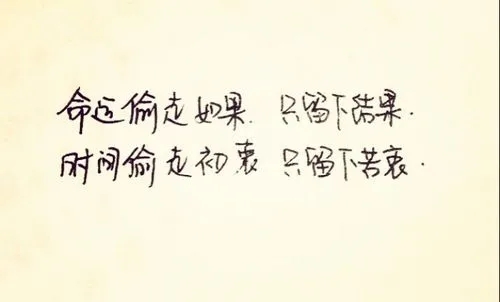 命运偷走如果.只留下结果.
时间偷走初衷 只留下苦衷.